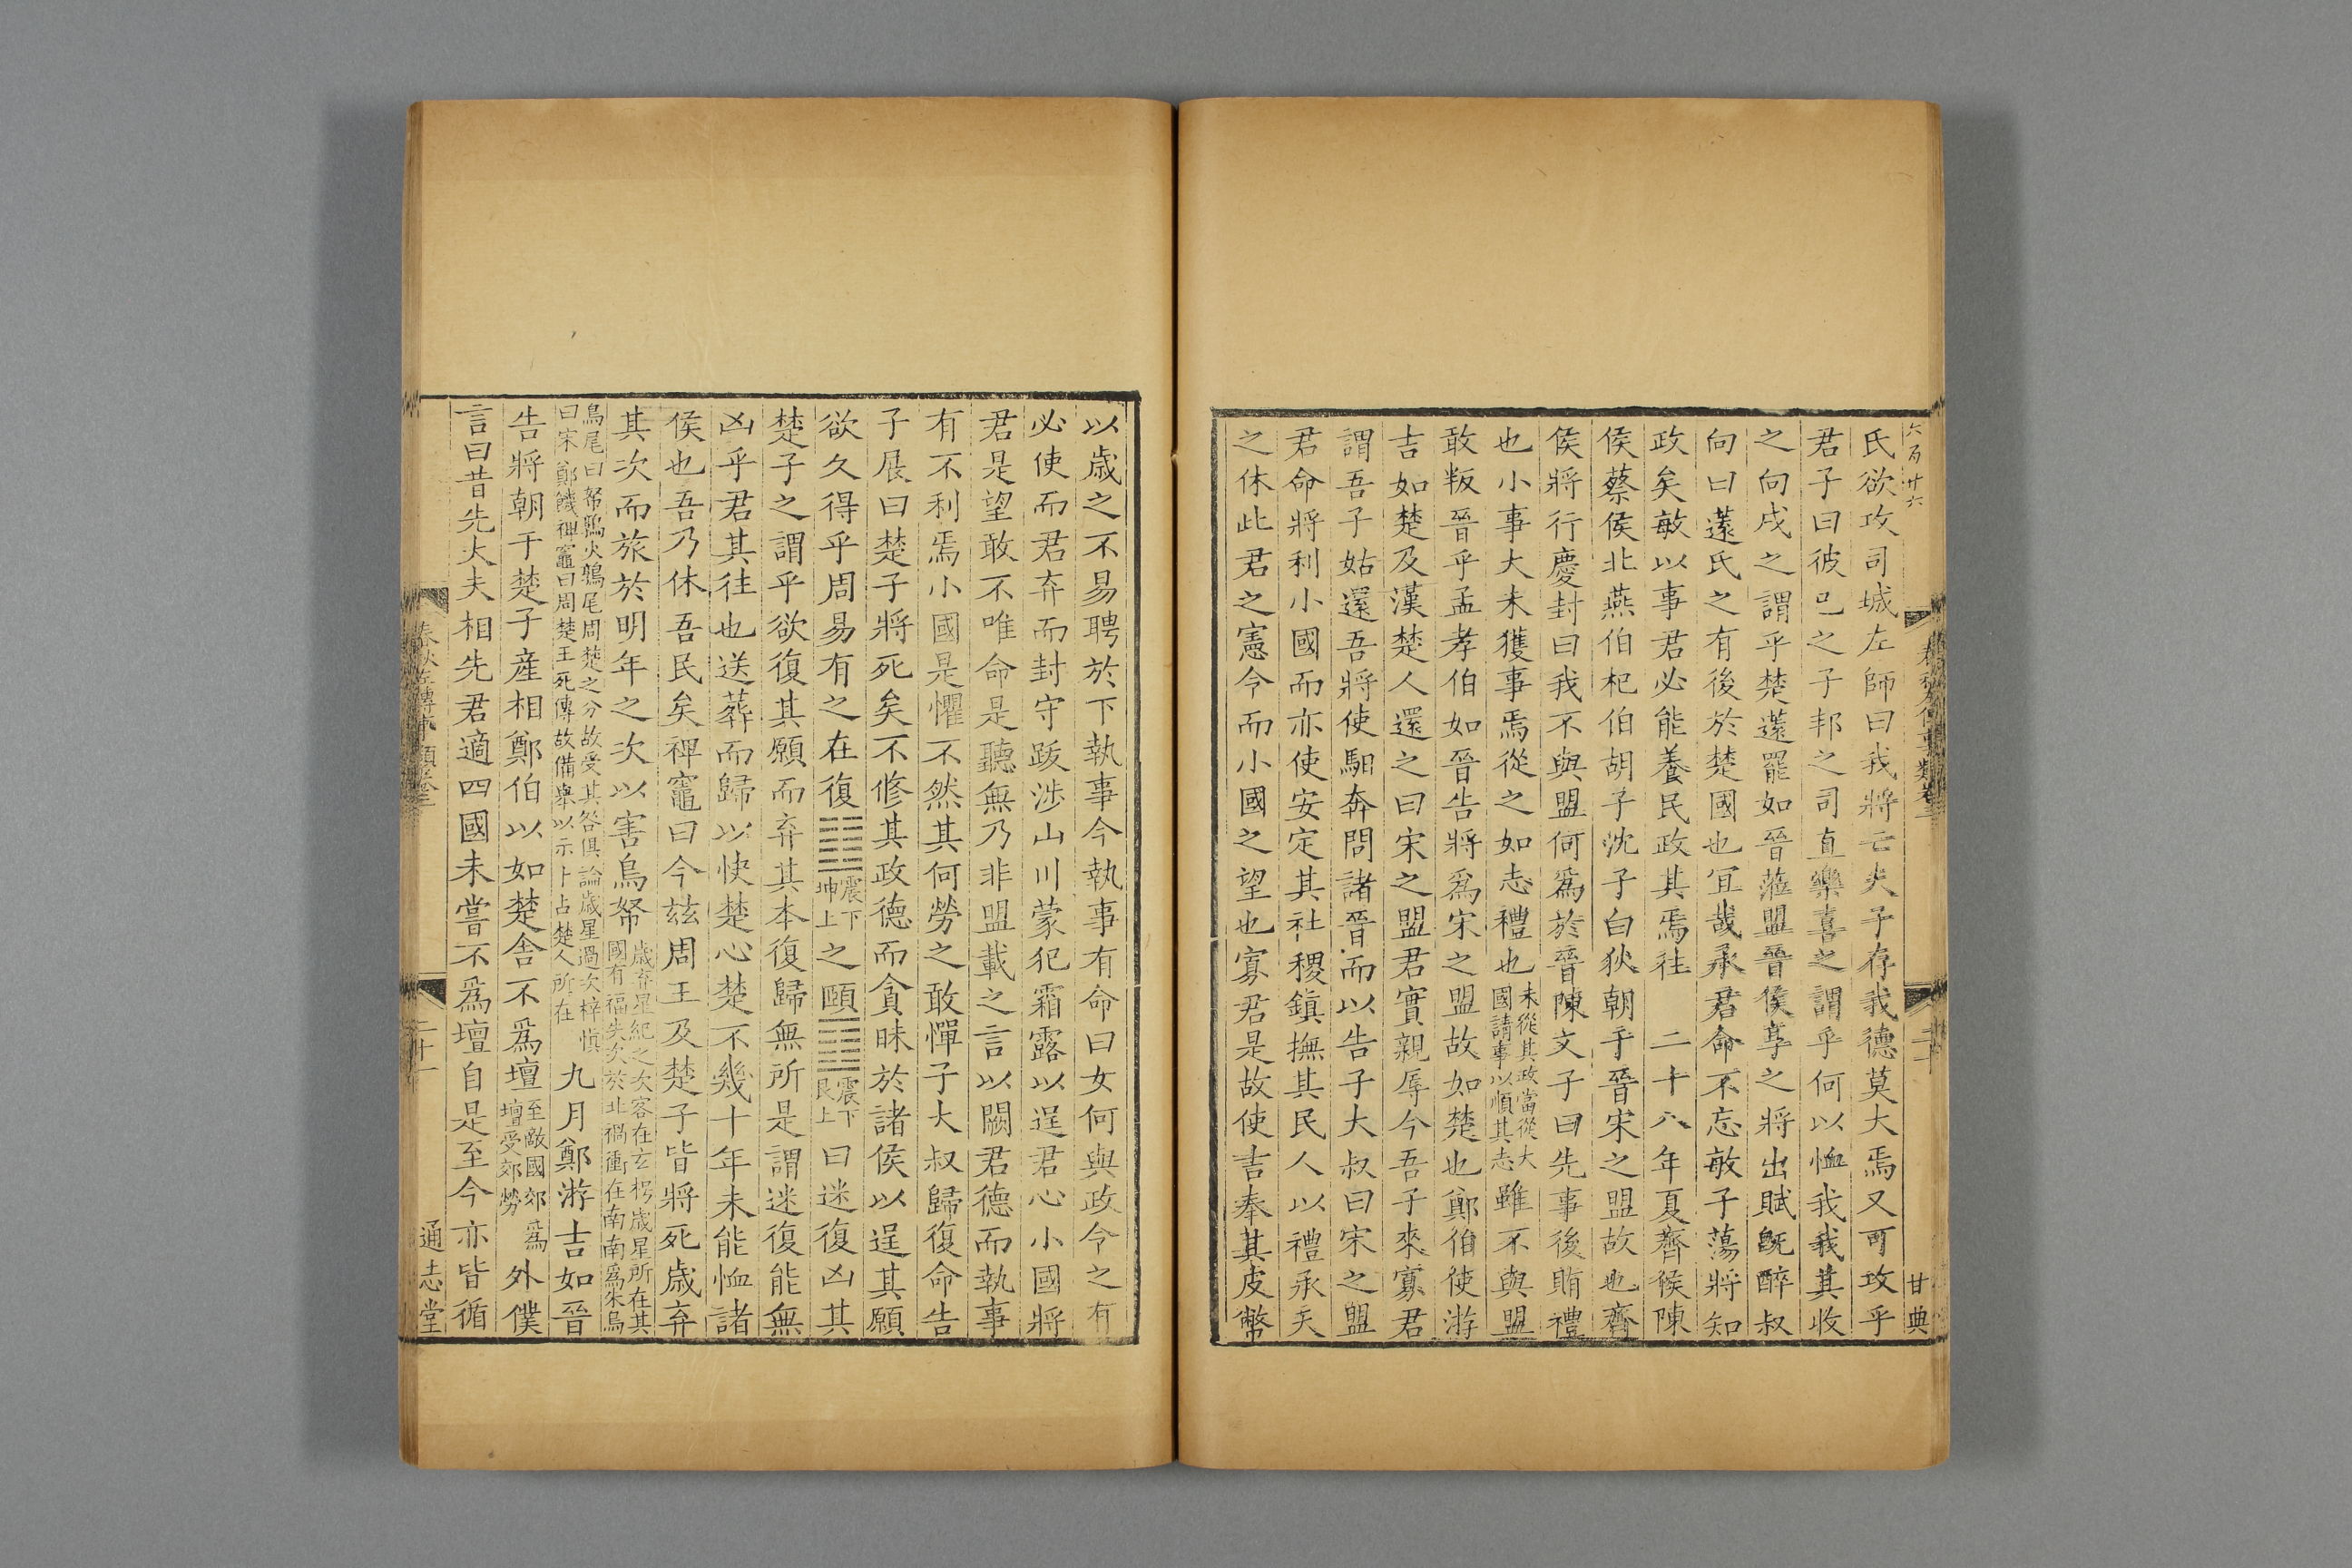 六百廿六
甘典
氏欲攻司城左師曰我將亡夫子存我德莫大焉又可攻乎
君子曰彼己之子邦之司直樂喜之謂乎何以恤我我其收
之向戌之謂乎楚薳罷如晉蒞盟晉侯享之將出賦旣醉叔
向曰薳氏之有後於楚國也宜哉承君命不忘敏子蕩將知
政矣敏以事君必能養民政其焉往 二十八年夏齊侯陳
侯蔡侯北燕伯杞伯胡子沈子白狄朝于晉宋之盟故也齊
侯將行慶封曰我不與盟何爲於晉陳文子曰先事後賄禮
也小事大未獲事焉從之如志禮也未從其政當從大國請事以順其志雖不與盟
敢叛晉乎孟孝伯如晉告將爲宋之盟故如楚也鄭伯使游
吉如楚及漢楚人還之曰宋之盟君實親辱今吾子來寡君
謂吾子姑還吾將使馹奔問諸晉而以告子大叔曰宋之盟
君命將利小國而亦使安定其社稷鎮撫其民人以禮承天
之休此君之憲令而小國之望也寡君是故使吉奉其皮幣
以歲之不易聘於下執事今執事有命曰女何與政令之有
必使而君弃而封守跋涉山川蒙犯霜露以逞君心小國將
君是望敢不唯命是聽無乃非盟載之言以闕君德而執事
有不利焉小國是懼不然其何勞之敢憚子大叔歸復命告
子展曰楚子將死矣不修其政德而貪昧於諸侯以逞其願
欲久得乎周易有之在復䷗震下坤上之頤䷚震下艮上曰迷復凶其
楚子之謂乎欲復其願而弃其本復歸無所是謂迷復能無
凶乎君其往也送葬而歸以快楚心楚不幾十年未能恤諸
侯也吾乃休吾民矣禆竈曰今茲周王及楚子皆將死歲弃
其次而旅於明年之次以害鳥帑歲弃星紀之次客在玄枵歲星所在其國有福失次於北禍衝在南南爲朱鳥
鳥尾曰帑鶉火鶉尾周楚之分故受其咎俱論歲星過次梓愼曰宋鄭饑禆竈曰周楚王死傳故備舉以示卜占楚人所在九月鄭游吉如晉
告將朝于楚子產相鄭伯以如楚舍不爲壇至敵國郊壇受郊勞爲外僕
言曰昔先大夫相先君適四國未嘗不爲壇自是至今亦皆循
二十一
通志堂